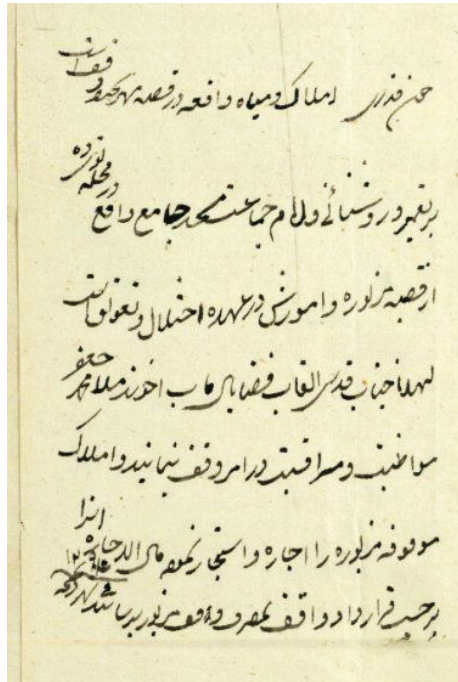 چون قدری املاک و میاه واقعه در قصبه وقف است
بر تعمیر و روشنائی و امام جماعت مسجد جامع واقع در محله نوده
از قصبه مزبوره و امورش در عهده اختلال و تعویق است
لهذا جناب قدسی القاب فضایل مآب آخوند ملا محمد جعفر
مواظبت و مراقبت در امر وقف بنمایند و املاک
موقوفه مزبوره را اجاره و استیجار مال الاجاره
بر حسب قرارداد واقف بمصرف وقف مزبور برسانند